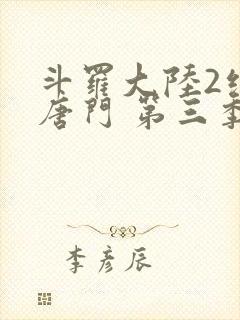 斗羅大陸2
唐門 第三季
李彥辰